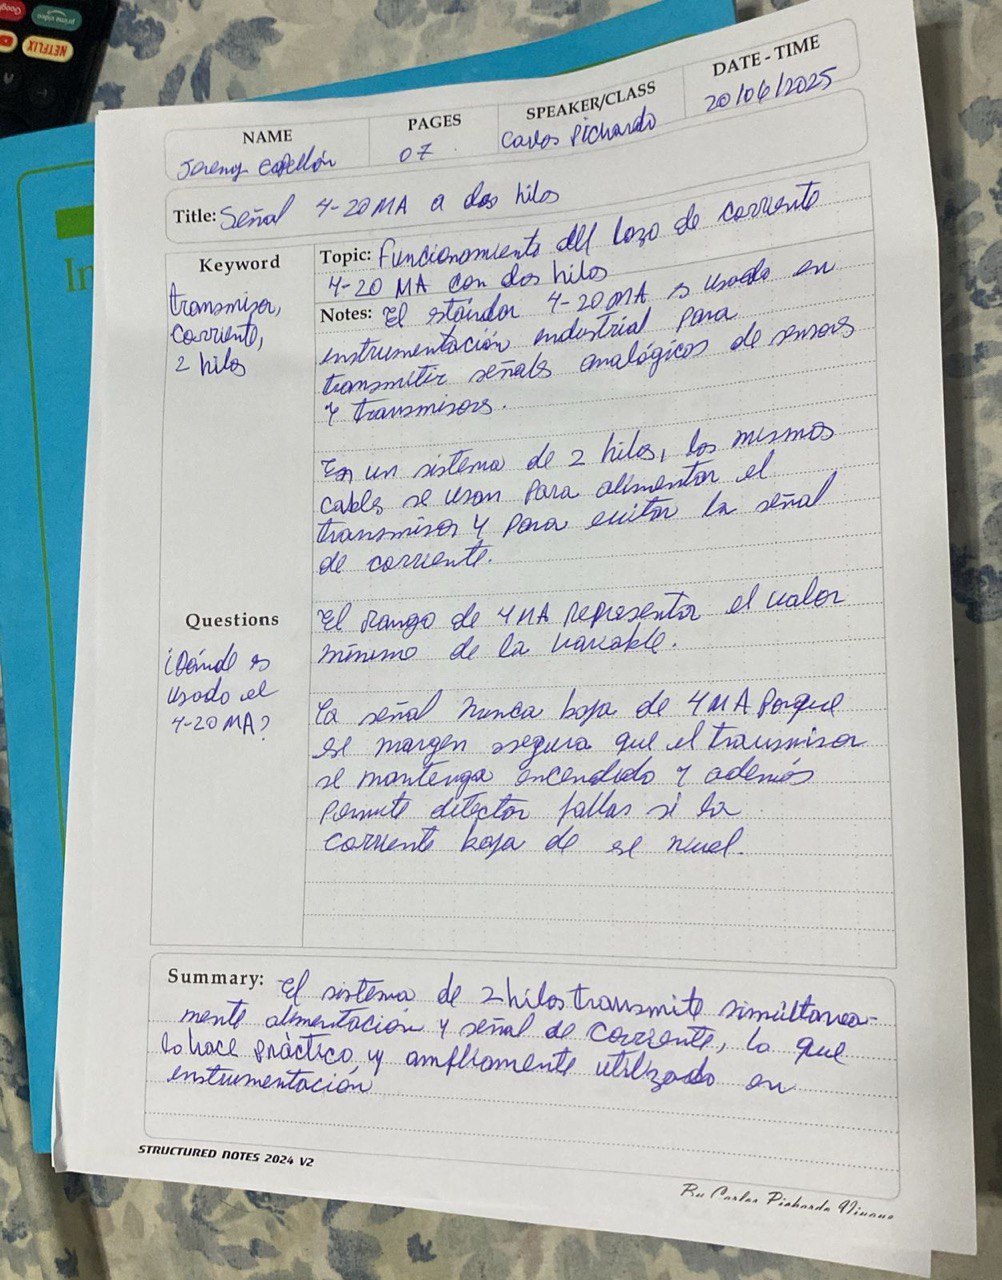 prime video
Google
NETFLIX
In
NAME
PAGES
SPEAKER/CLASS
DATE - TIME
Jeremy Capellán
07
Carlos Pichardo
20/06/2025
Title: Señal 4-20 MA a dos hilos
Keyword
transmisor,
corriente,
2 hilos
Topic: Funcionamiento del lazo de corriente
4-20 MA con dos hilos
Notes: El estándar 4-20 MA es usado en
instrumentación industrial para
transmitir señales analógicos de sensores
y transmisores.
En un sistema de 2 hilos, los mismos
cables se usan para alimentar el
transmisor y para emitir la señal
de corriente.
Questions
¿Dónde es
usado el
4-20 MA?
El rango de 4 MA representa el valor
mínimo de la variable.
La señal nunca baja de 4 MA porque
ese margen asegura que el transmisor
se mantenga encendido y además
permite detectar fallas si la
corriente baja de ese nivel.
Summary: El sistema de 2 hilos transmite simultanea-
mente alimentación y señal de corriente, lo que
lo hace práctico y ampliamente utilizado en
instrumentación
STRUCTURED NOTES 2024 V2
By Carlos Pichardo Viuque